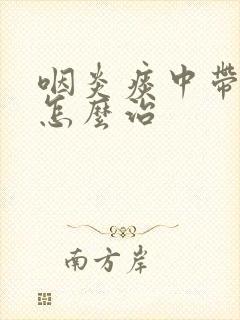 咽炎痰中帶
怎麼治
南方岸